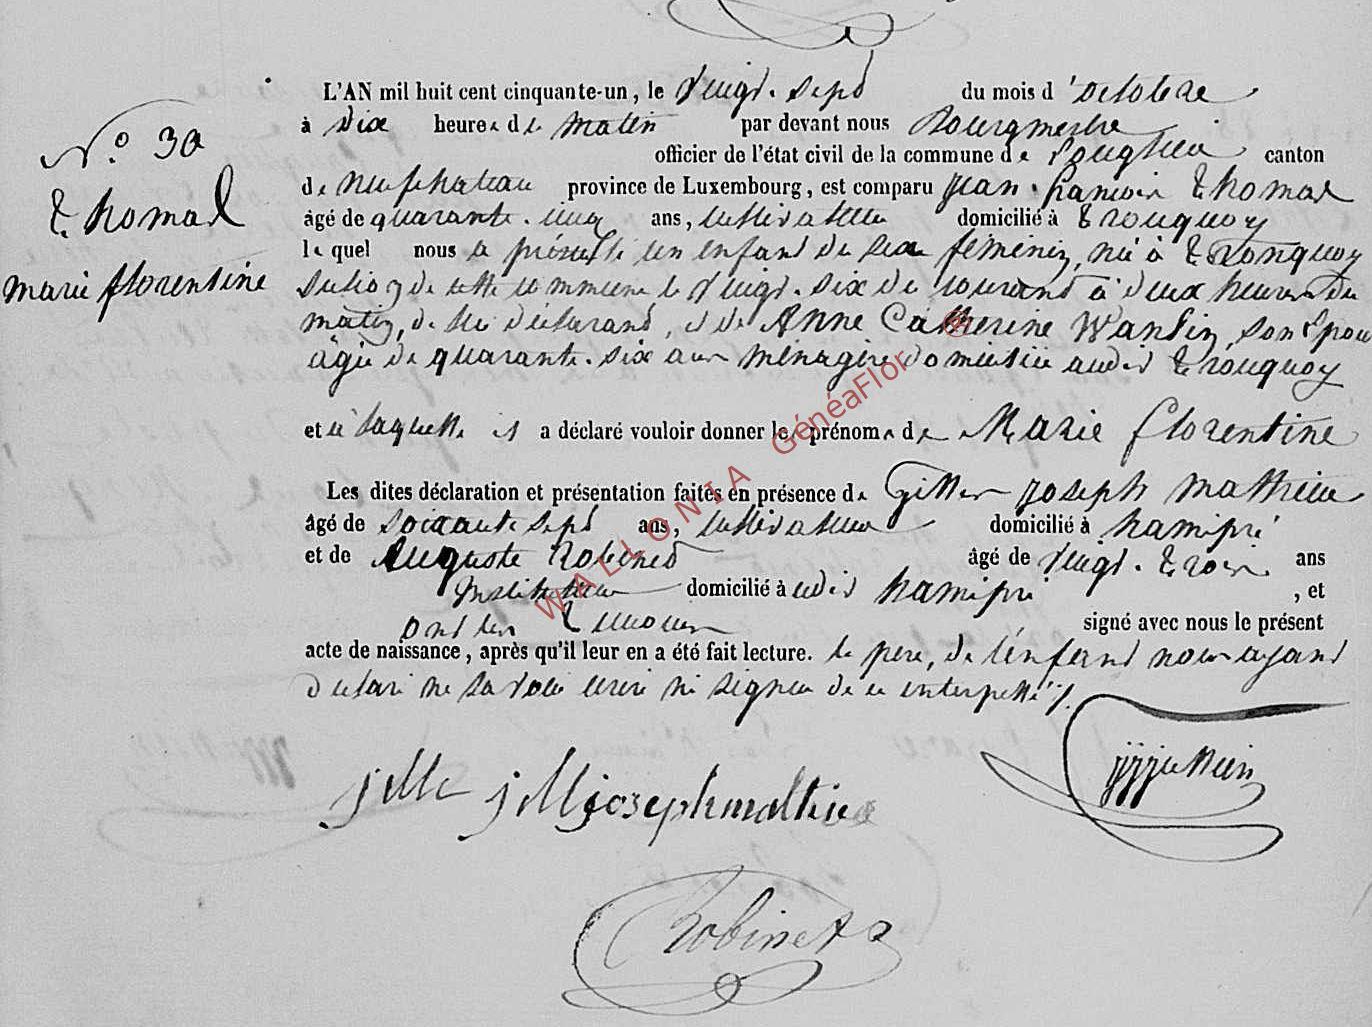 L'AN mil huit cent cinquante-un, le vingt. sept du mois d'octobre
N.° 30
à dix heures de matin par devant nous Bourgmestre
officier de l'état civil de la commune de Longlier canton
de Neufchateau province de Luxembourg, est comparu Jean. francois Thomas
Thomas
âgé de quarante. cinq ans, cultivateur domicilié à Tronquoy
lequel nous a présenté un enfant du sexe féminin, né à Tronquoy
marie florentine
Section de cette commune le vingt. six du courant à deux heures du
matin, de lui déclarant, et de Anne Catherine Wanlin, son Epouse
âgée de quarante. six ans ménagère domiciliée audit Tronquoy
et à laquelle il a déclaré vouloir donner les prénoms de Marie florentine
Les dites déclaration et présentation faites en présence de Gillet joseph Mathieu
âgé de soixante sept ans, cultivateur domicilié à hamipré
et de Auguste Robinet âgé de vingt. trois ans
Instituteur domicilié à udit hamipré , et
ont les témoins signé avec nous le présent
acte de naissance, après qu'il leur en a été fait lecture. le père, de l'énfant nous ayant
déclaré ne savoir écrire ni signer de ce interpellé ./.
WALLONIA GénéaFlor ®
joseph mathieu
Robinet